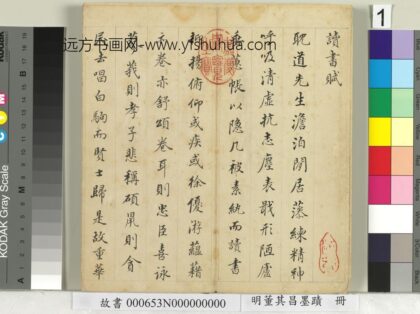 讀書賦
耽道先生澹泊閒居藻練精神
呼吸清虛抗志塵表戢形陋廬
垂帷帳以隱几被素紈而讀書
抑揚俯仰或疾或徐優游蘊藉
亦卷亦舒頌卷耳則忠臣喜詠
蓼莪則孝子悲稱碩鼠則貪
民去唱白駒而賢士歸是故重華
远方书画网-www.yfshuhua.com
1
KODAK Gray Scale
故書 000653N000000000
明董其昌墨蹟 冊